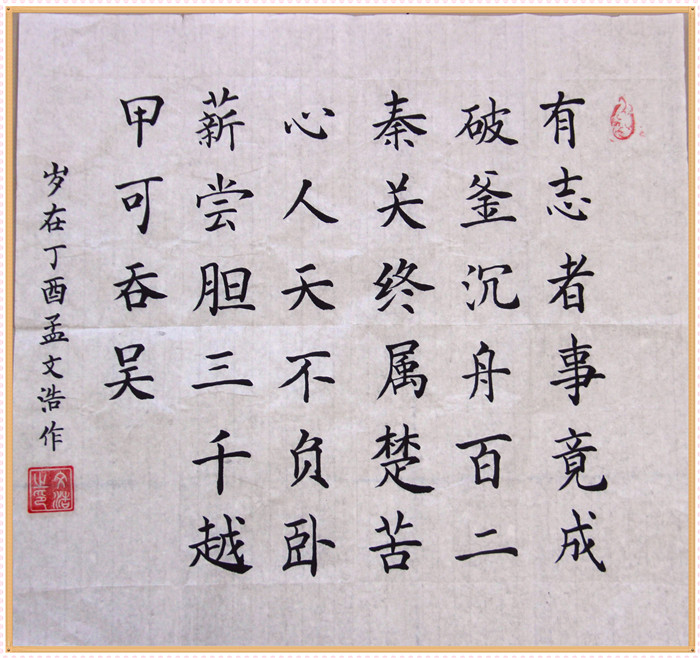 有志者事竟成
破釜沉舟百二
秦关终属楚苦
心人天不负卧
薪尝胆三千越
甲可吞吴
岁在丁酉孟文浩作
文浩之印